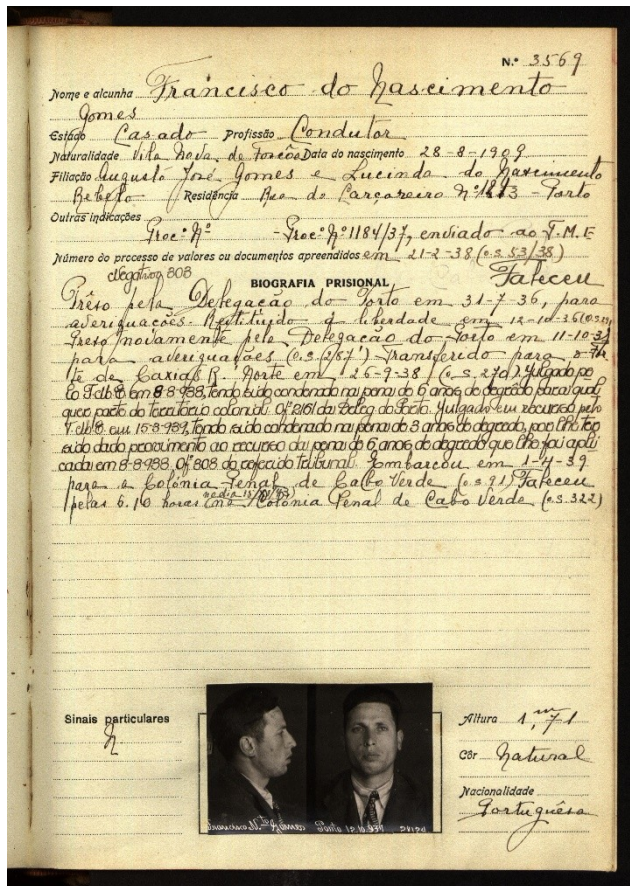 N.º 3569
Nome e alcunha Francisco do Nascimento
Gomes
Estado Casado Profissão Condutor
Naturalidade Vila Nova de Foscôa Data do nascimento 28-8-1909
Filiação Augusto José Gomes e Lucinda do Nascimento
Rebelo Residência Rua do Carçareiro Nº - Porto
Outras indicações
Proc.º Nº - Proc.º Nº 1184/37, enviado ao T.M.E
Número do processo de valores ou documentos apreendidos em 21-2-38 (o.s 53/38)
Negativo 803 Faleceu
BIOGRAFIA PRISIONAL
Prêso pela Delegação do Porto em 31-7-36, para
averiguações. Restituido á liberdade em 12-10-36
Preso novamente pela Delegação do Porto em 11-10-37
para averiguações (o.s. 287) Transferido para o For
te de Caxias R. Norte em 26-9-38 (o.s. 270). Julgado pe
lo T.M.E. em 8-8-938, tendo sido condenado na pena de 6 anos de degrêdo para qual
quer parte do território colonial. Of. 2161 da Deleg. do Porto. Julgado em recurso pelo
T.M.E. em 15-3-939, tendo sido condenado na pena de 3 anos de degredo, por lhe ter
sido dado provimento ao recurso da pena de 6 anos de degredo que lhe foi apli
cada em 8-8-938. Of. 808 do referido tribunal. Embarcou em 1-4-39
para a Colónia Penal de Cabo Verde (o.s 91) Faleceu
pelas 6.10 horas no dia na Colónia Penal de Cabo Verde (o.s 322)
Sinais particulares
N
Altura 1,m71
Côr Natural
Nacionalidade
Portuguêsa